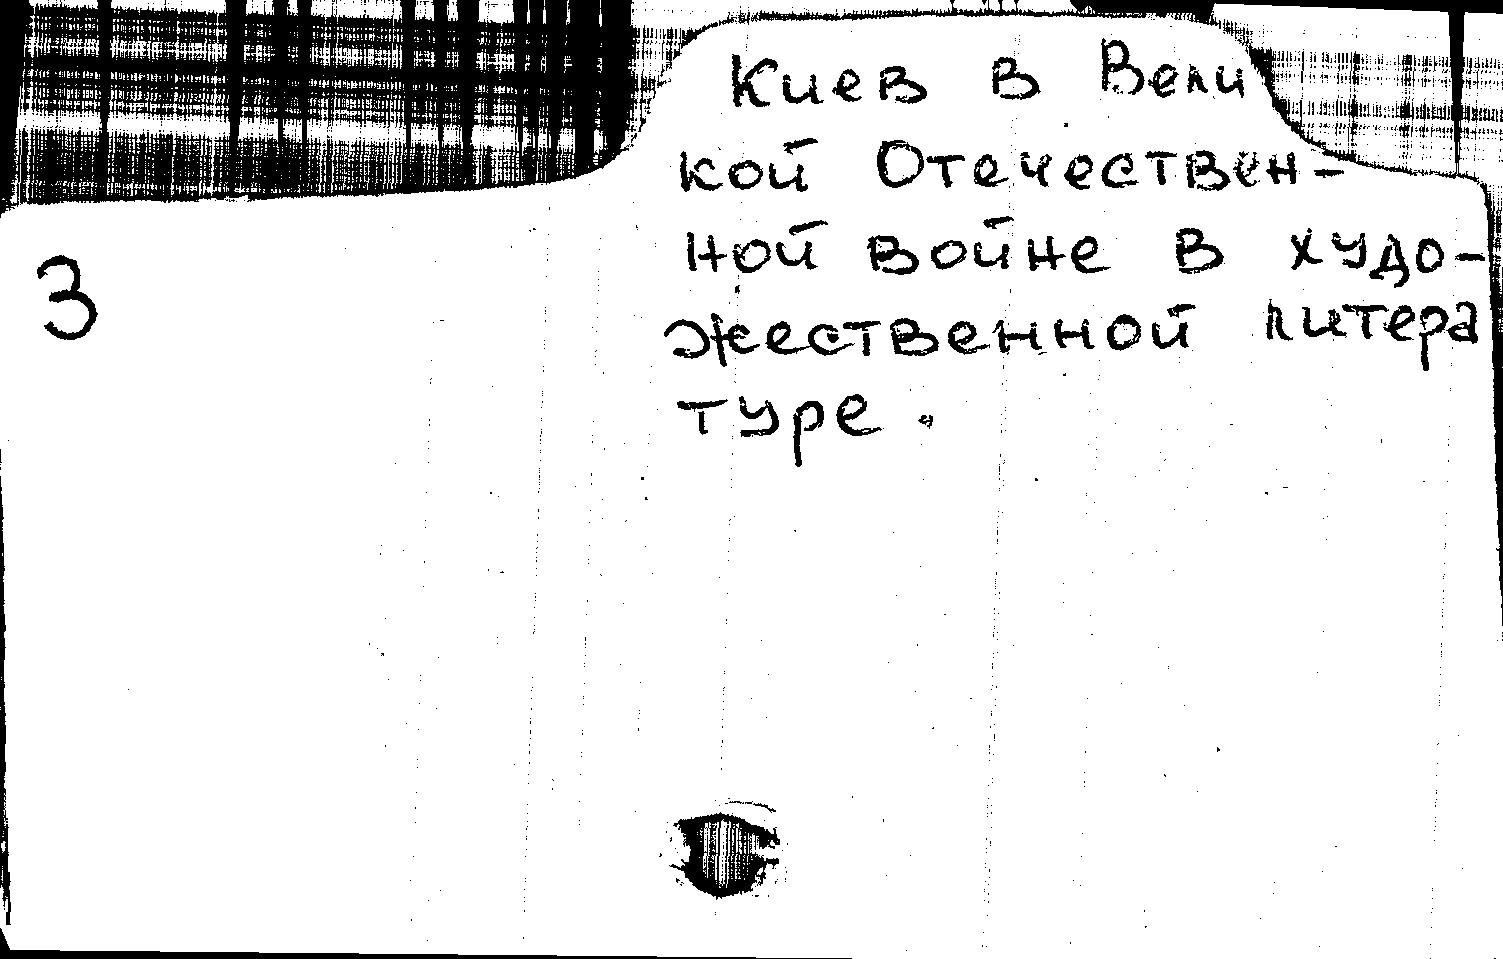 Киев в Вели
кой Отечествен-
ной войне в худо-
жественной литера
туре.
3